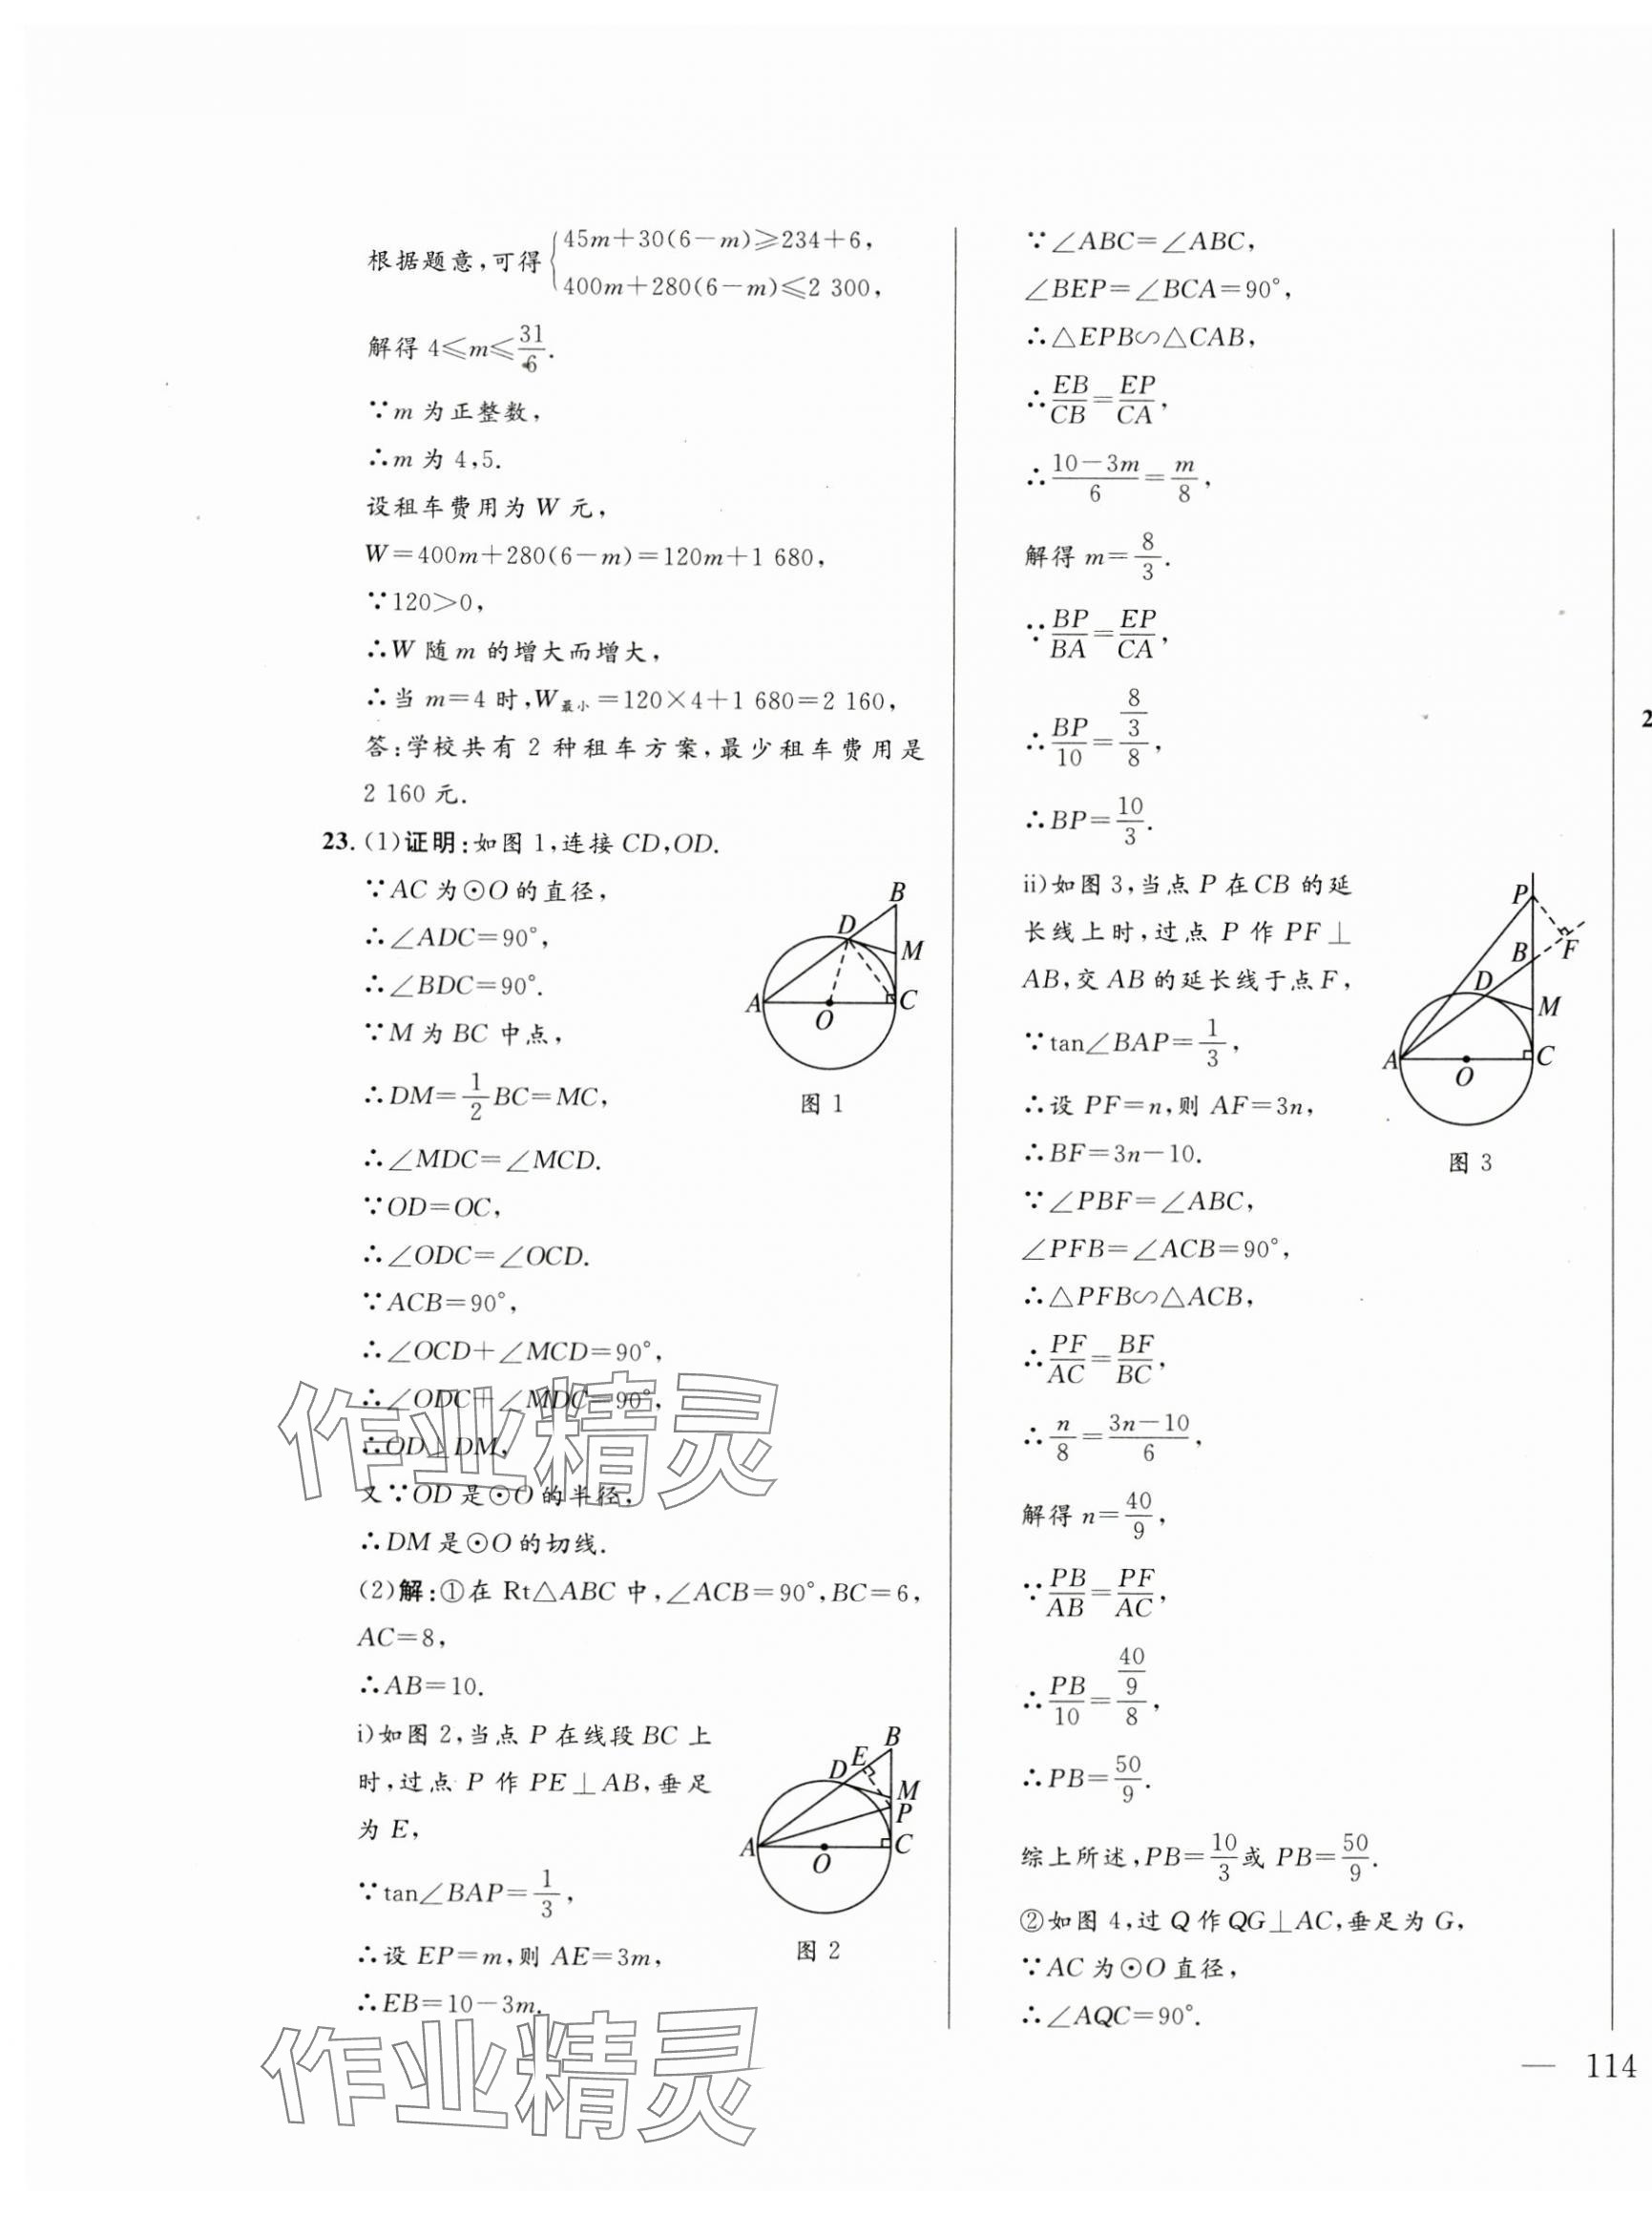 根据题意,可得{45m+30(6-m)≥234+6,
400m+280(6-m)≤2 300,
解得 4≤m≤31/6.
∵m 为正整数,
∴m 为 4,5.
设租车费用为 W 元,
W=400m+280(6-m)=120m+1 680,
∵120>0,
∴W 随 m 的增大而增大,
∴当 m=4 时,W最小=120×4+1 680=2 160,
答:学校共有 2 种租车方案,最少租车费用是
2 160 元.
23. (1)证明:如图 1,连接 CD,OD.
∵AC 为⊙O 的直径,
∴∠ADC=90°,
∴∠BDC=90°.
∵M 为 BC 中点,
∴DM=1/2BC=MC,
∴∠MDC=∠MCD.
∵OD=OC,
∴∠ODC=∠OCD.
∵ACB=90°,
∴∠OCD+∠MCD=90°,
∴∠ODC+∠MDC=90°,
∴OD⊥DM,
又∵OD 是⊙O 的半径,
∴DM 是⊙O 的切线.
(2)解:①在 Rt△ABC 中,∠ACB=90°,BC=6,
AC=8,
∴AB=10.
i)如图 2,当点 P 在线段 BC 上
时,过点 P 作 PE⊥AB,垂足
为 E,
∵tan∠BAP=1/3,
∴设 EP=m,则 AE=3m,
∴EB=10-3m.
B
D
M
A
O
C
图 1
B
E
D
M
P
A
O
C
图 2
∵∠ABC=∠ABC,
∠BEP=∠BCA=90°,
∴△EPB∽△CAB,
∴EB/CB=EP/CA,
∴(10-3m)/6=m/8,
解得 m=8/3.
∵BP/BA=EP/CA,
∴BP/10=(8/3)/8,
∴BP=10/3.
ii)如图 3,当点 P 在 CB 的延
长线上时,过点 P 作 PF⊥
AB,交 AB 的延长线于点 F,
∵tan∠BAP=1/3,
∴设 PF=n,则 AF=3n,
∴BF=3n-10.
∵∠PBF=∠ABC,
∠PFB=∠ACB=90°,
∴△PFB∽△ACB,
∴PF/AC=BF/BC,
∴n/8=(3n-10)/6,
解得 n=40/9,
∵PB/AB=PF/AC,
∴PB/10=(40/9)/8,
∴PB=50/9.
综上所述,PB=10/3或 PB=50/9.
②如图 4,过 Q 作 QG⊥AC,垂足为 G,
∵AC 为⊙O 直径,
∴∠AQC=90°.
P
B
F
D
M
A
O
C
图 3
2
— 114
作业精灵
作业精灵